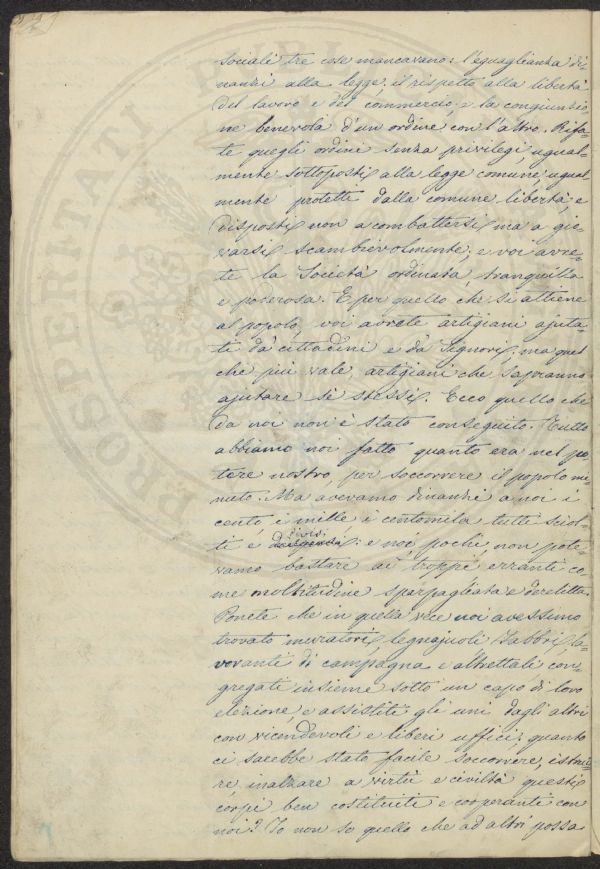 sociali tre cose mancavano: l'eguaglianza di-
nanzi alla legge, il rispetto alla libertà
del lavoro e del commercio, e la congiunzio-
ne benevola d'un ordine con l'altro. Rifa-
te quegli ordini senza privilegi, ugual-
mente sottoposti alla legge comune, ugual-
mente protetti dalla comune libertà, e
disposti non a combattersi ma a gio-
varsi scambievolmente, e voi avre-
te la Società ordinata, tranquilla
e poderosa. E per quello che si attiene
al popolo, voi avrete artigiani ajuta-
ti da' cittadini e da' Signori; ma quel
che più vale artigiani che sapranno
ajutare sè stessi. Ecco quello che
da noi non è stato conseguito. Tutto
abbiamo noi fatto quanto era nel po-
tere nostro, per soccorrere il popolo mi-
nuto. Ma avevamo dinanzi a noi i
cento, i mille, i centomila tutti sciol-
ti e divisi: e noi pochi, non pote-
vamo bastare ai troppi erranti co-
me moltitudine sparpagliata e derelitta.
Ponete che in quella vece noi avessimo
trovato muratori, legnajuoli, fabbri, la-
voranti di campagna e altrettali con-
gregati insieme sotto un capo di loro
elezione, e assistiti gli uni dagli altri
con vicendevoli e liberi uffici; quanto
ci sarebbe stato facile soccorrere, istrui-
re, inalzare a virtù e civiltà questi
corpi ben costituiti e cooperanti con
noi? Io non so quello che ad altri possa
PROSPERITATI PUBL